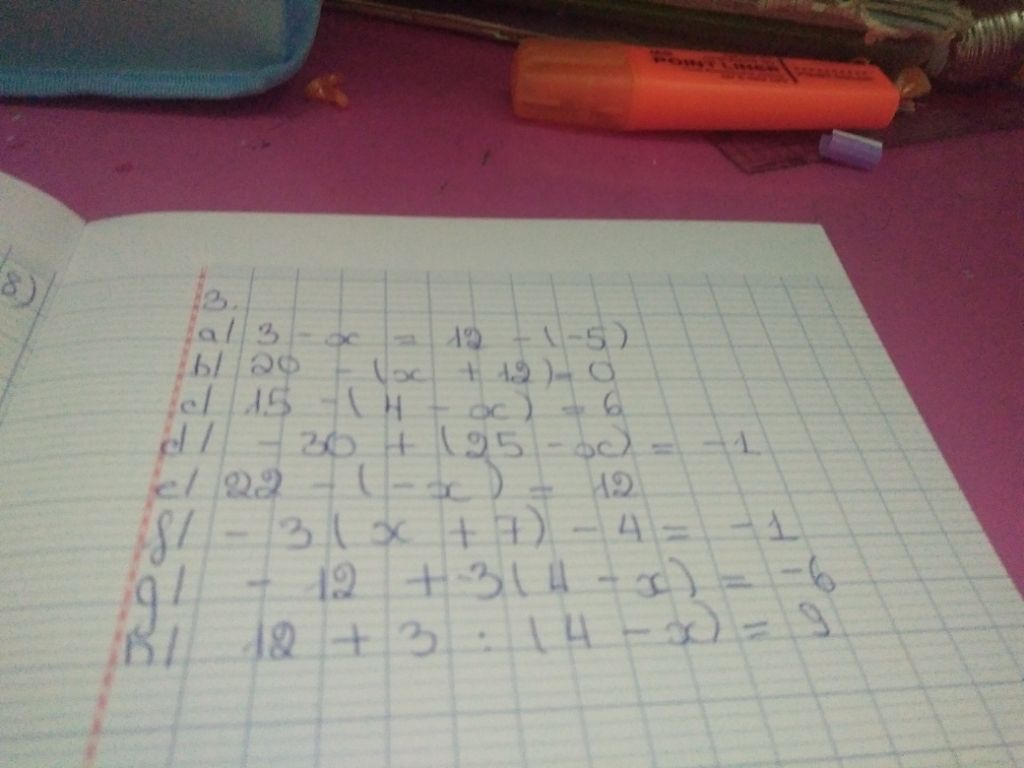 POINT LINER
8)
3.
a/ 3 - x = 12 - (-5)
b/ 20 - (x + 12) = 0
c/ 15 - (4 - x) = 6
d/ - 30 + (25 - x) = -1
e/ 22 - (-x) = 12
f/ - 3(x + 7) - 4 = -1
g/ - 12 + 3(4 - x) = -6
h/ 12 + 3 : (4 - x) = 9